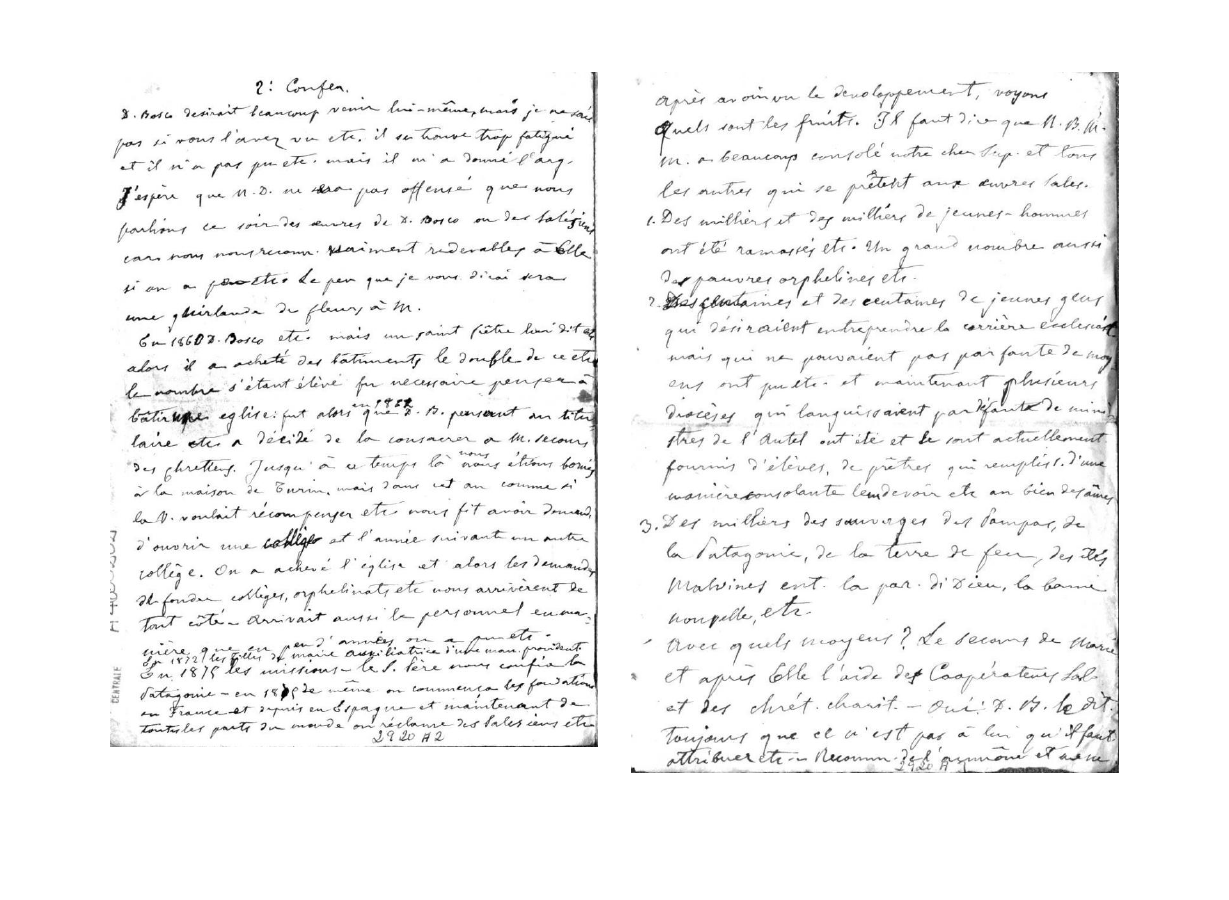 2: Confer.
D. Bosco desirait beaucoup venir lui-même, mais je ne sais
pas si vous l'avez vu etc. il se trouve trop fatigué
et il n'a pas pu etc. mais il m'a donné l'arg.
J'espère que N.D. ne sera pas offensé que nous
parlions ce soir des œuvres de D. Bosco ou des Salésiens
car nous nous reconn. vraiment redevables à Elle
si on a pu etc. Le peu que je vous dirai sera
une guirlande de fleurs à M.
En 1860 D. Bosco etc. mais un saint prêtre lui dit etc
alors il a acheté des bâtiments le double de ce etc
le nombre s'étant élévé fu necessaire penser à
bâtir une eglise: fut alors que D. B. pensant au titu-
en 18
laire etc a décidé de la consacrer a M. secours
des chretiens. Jusqu'à ce temps là nous étions bornés
à la maison de Turin, mais dans cet an comme si
la V. voulait récompenser etc nous fit avoir demand.
d'ouvrir une collége et l'année suivant un autre
collège. On a achevé l'église et alors les demandes
de fonder collèges, orphelinats etc nous arrivèrent de
tout côté - Arrivait aussi le personnel en ma-
nière que en peu d'années on a pu etc.
En 1872 les filles de Marie Auxiliatrice d'une man. providenti.
En 1875 les missions - le S. Père nous confia la
Patagonie - en 18 de même on commença les fondations
en France et depuis en Espagne et maintenant de
toutes les parts du monde on réclame des Salesiens etc
2920 A2
CENTRALE
après avoir vu le developpement, voyons
Quels sont les fruits. Il faut dire que N. B. M.
M. a beaucoup consolé notre cher Sup. et tous
les autres qui se prêtent aux œuvres Sales.
1. Des milliers et des milliers de jeunes-hommes
ont été ramassés etc. Un grand nombre aussi
des pauvres orphelines etc.
2. Des centaines et des centaines de jeunes gens
qui désiraient entreprendre la carrière ecclesiast
mais qui ne pouvaient pas par faute de moy
ens ont pu etc. et maintenant plusieurs
diocèses qui languissaient par faute de mini
stres de l'Autel ont été et se sont actuellement
fournis d'élèves, de prêtres qui remplis. d'une
manière consolante leur devoir etc au bien des âmes
3. Des milliers des sauvages des Pampas, de
la Patagonie, de la terre de feu, des Iles
Malvines ent. la par. di Dieu, la bonne
nouvelle, etc.
Avec quels moyens? Le secours de Marie
et après Elle l'aide des Coopérateurs Sal.
et des chrét. charit. - Oui: D. B. le dit
toujours que ce n'est pas à lui qu'il faut
attribuer etc - Recomm. de l'aumône et
2920 A